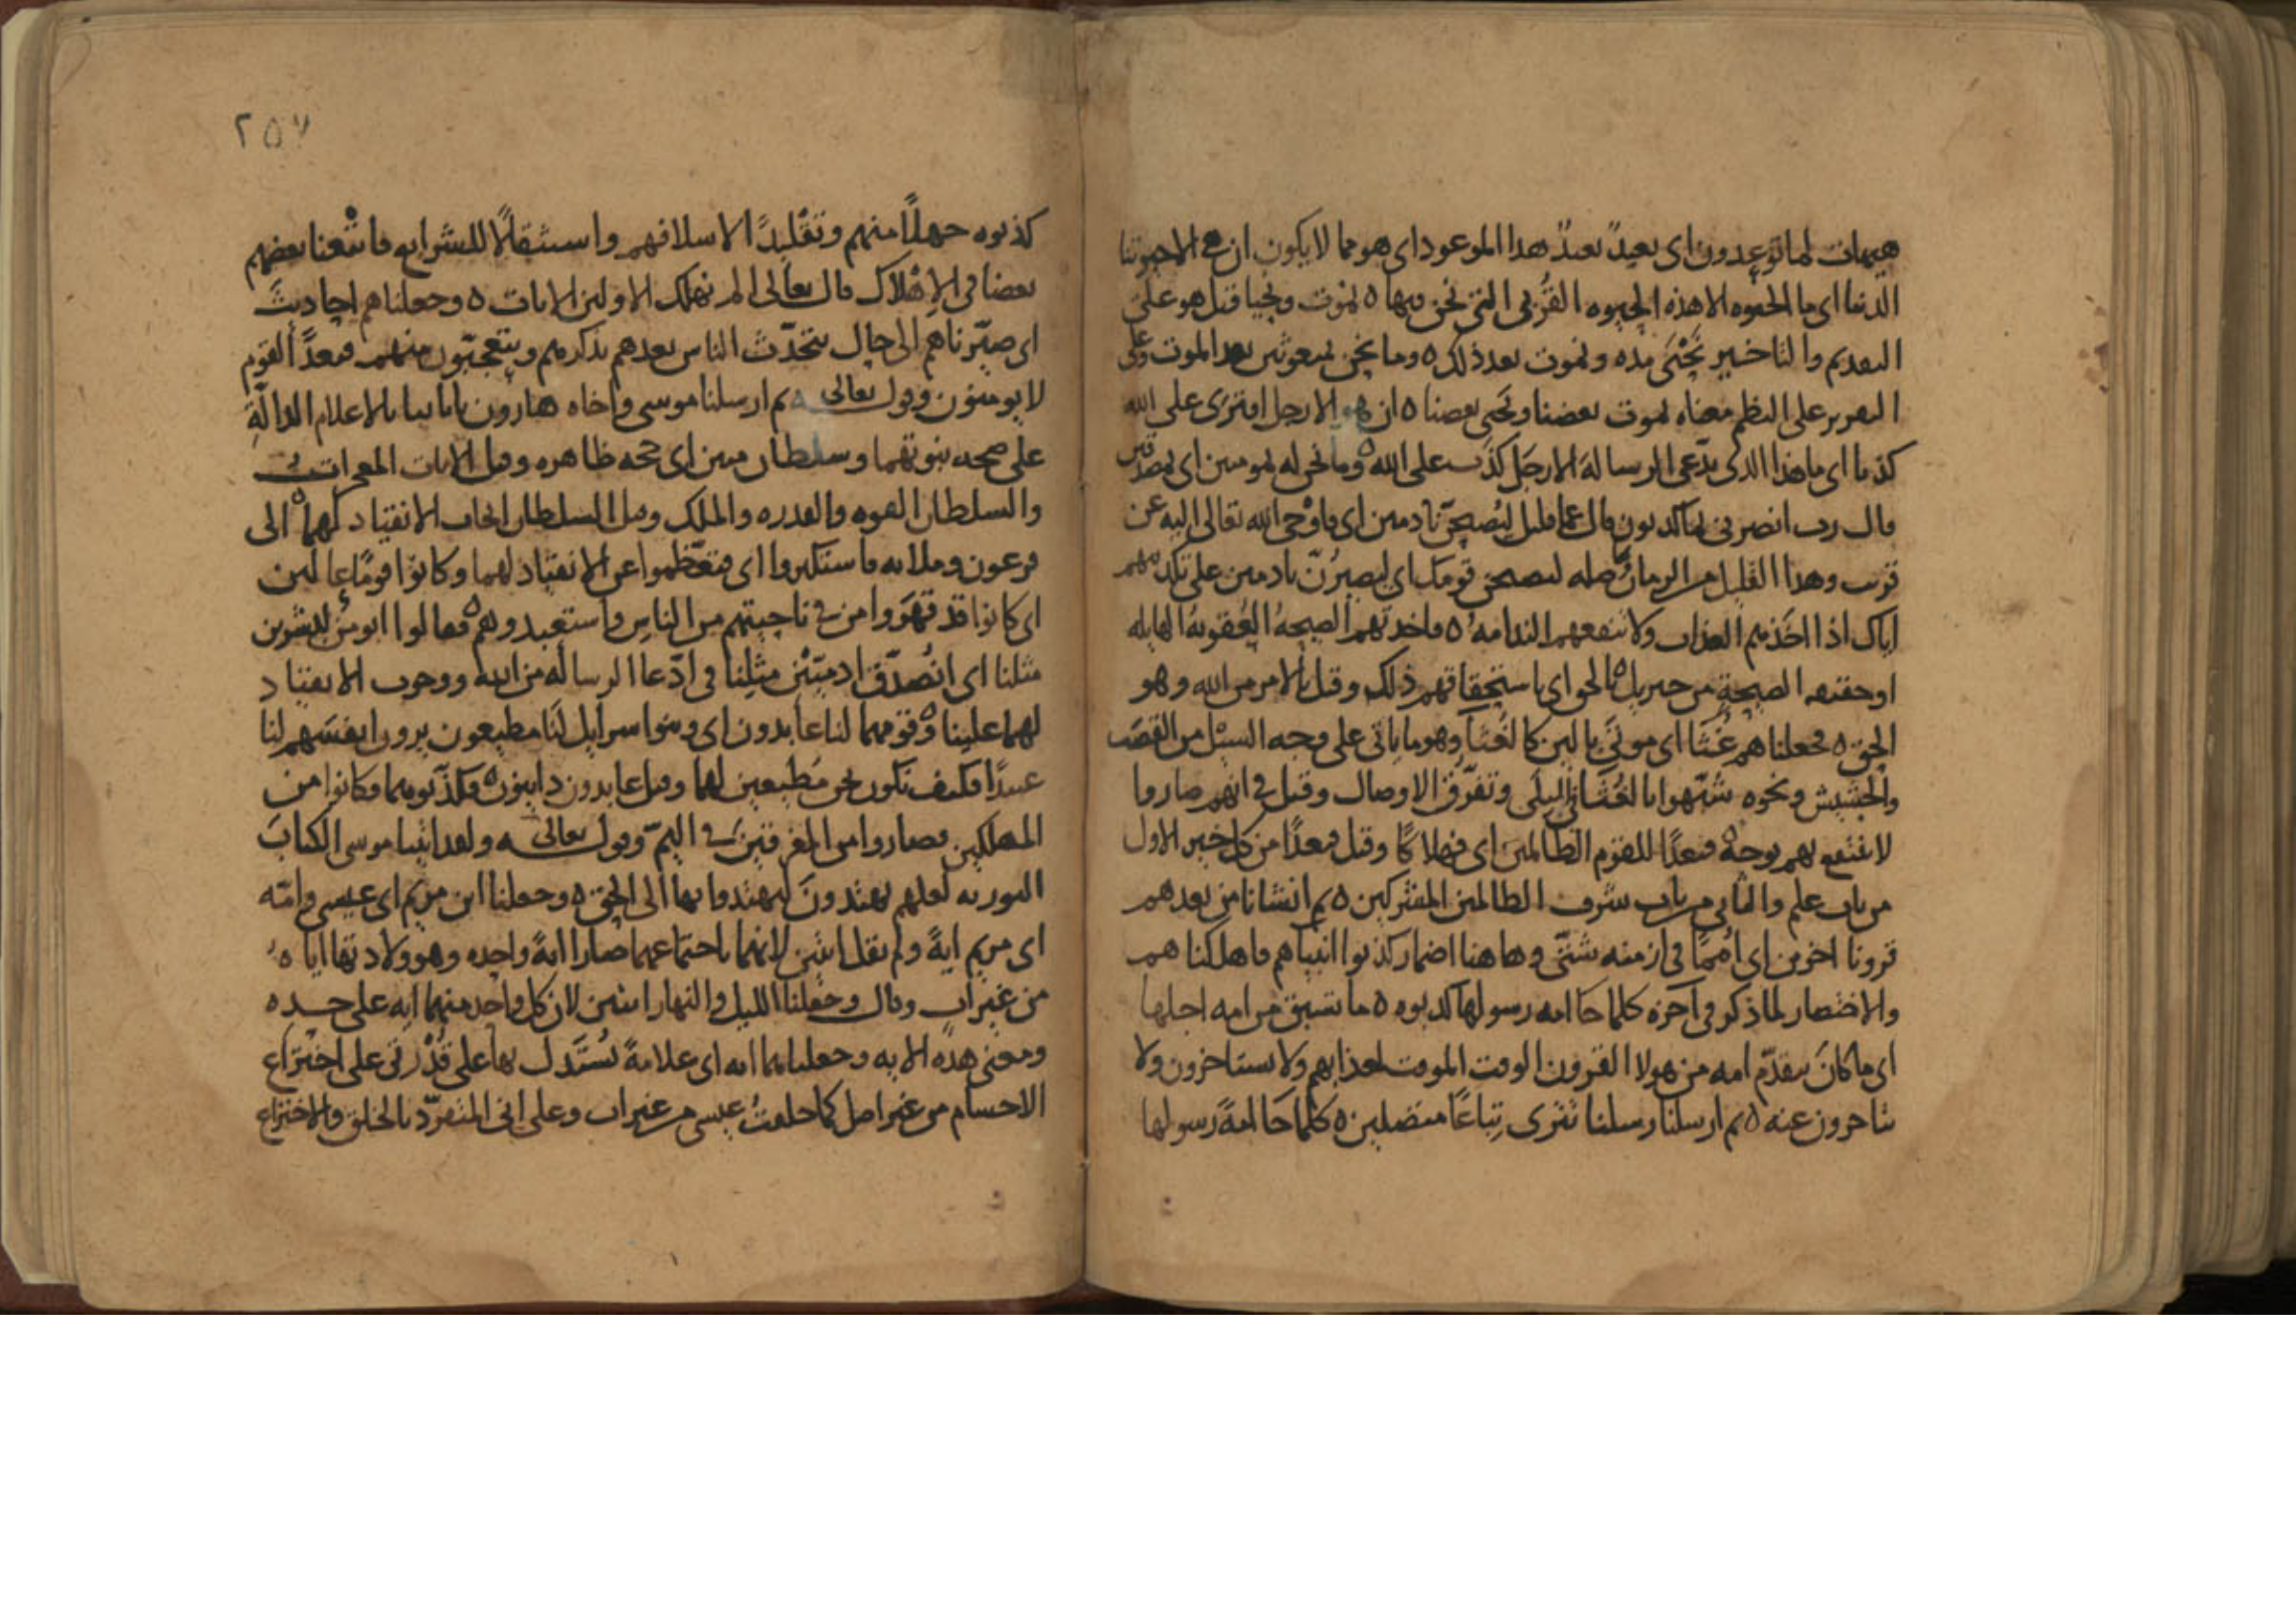 هيهات لما توعدون اى بعيدٌ بعيدٌ هذا الموعود اى هو مما لا يكون ان هى الا حيوتنا
الدنيا اى ما الحيوه الا هذه الحيوه القُربى التى نحن فيها ه نموت ونحيا قيل هو على
التقديم والتاخير نَحْيَى مده ونموت بعد ذلك ه وما نحن بمبعوثين بعد الموت وعلى
التقرير على النظم معناه يموت بعضنا ويحيى بعضنا ه ان هو الا رجل افترى على الله
كذبا اى ما هذا الذى يدّعى الرسالة الا رجل كذب على الله ه وما نحن له بمومنين اى بمصدقين
قال رب انصرنى بما كذبون قال عما قليل ليُصبحنّ نادمين اى فاوْحى الله تعالى اليه عن
قرب وهذا القليل من الزمان وما صله ليصبحن قومك اى ليصيرُنّ نادمين على تكذيبهم
اياك اذا اخذهم العذاب ولا تنفعهم الندامه ه فاخذتهم الصيحهُ العُقوبهُ الهايله
او حقيقه الصيحة من جبريل ه بالحق اى باستحقاقهم ذلك وقيل بالامر من الله وهو
الحق ه فجعلناهم غُثاً اى موتَى بالين كالغُثآ وهو ما ياتى على وجه السيْل من القصَب
والحشيش ونحوه شُبّهوا بالغُثآ فى البلَى وتفرّق الاوصال وقيل فى انهم صاروا
لا ينتفع بهم بوجه ه فبعدًا للقوم الظالمين اى فهلاكًا وقيل فبعدًا من كل خير الاول
من باب علم والثانى من باب شرف الظالمين المشركين ه ثم انشانا من بعدهم
قرونا اخرين اى اُممًا فى ازمنه شتّى وهاهنا اضمار كذبوا انبياهم فاهلكناهم
والاختصار لما ذكر فى آخره كلما جا امه رسولها كذبوه ه ما تسبق من امه اجلها
اى ما كانَ يتقدّم امه من هولا القرون الوقت الموقت لعذابهم ولا يستاخرون ولا
يتاخرون عنه ه ثم ارسلنا رسلنا تترى تِباعًا متصلين ه كلما جا امةً رسولها
كذبوه جهلاً منهم وتقْليدًا لاسلافهم واستثقالًا للشرايع فاتْبعنا بعضهم
بعضا فى الاهْلاك قال تعالى الم نهلك الاولين الايات ه وجعلناهم احاديثَ
اى صيّرناهم الى حال يتحدّث الناس بعدهم بذكرهم ويتعجّبون منهم فبعدًا لقوم
لا يومنون وقوله تعالى ه ثم ارسلنا موسى واخاه هارون باياتنا بالاعلام الدالّةِ
على صحه نبوتهما وسلطان مبين اى حجه ظاهره وقيل الايات المعجزات
والسلطان القوه والقدره والملك وقيل السلطان ايجاب الانقياد لهما ه الى
فرعون وملايه فاستكبروا اى فتعَظّموا عن الانقياد لهما وكانوا قومًا عالين
اى كانوا قد قهَروا من فى ناحيتهم من الناس واستعبدوهم ه فقالوا انومن لبشرين
مثلنا اى انُصدّق ادميّيْن مثلنا فى ادّعا الرساله من الله ووجوب الانقياد
لهما علينا ه وقومهما لنا عابدون اى وبنوا سرايل لَنا مطيعون يرون انفسَهم لنا
عبيدًا فكيف نكون نحن مُطيعين لهما وقيل عابدون داينون ه فكذّبوهما فكانوا من
المهلكين فصاروا من المغرقينَ فى اليمّ وقوله تعالى ه ولقد اتينا موسى الكتابَ
التوريه لعلهم يهتدونَ ليهتدوا بها الى الحق ه وجعلنا ابن مريم اى عيسى وامّه
اى مريم ايةً ولم يقل ايتين لانهما باجتماعهما صارا ايةً واحده وهو ولادتها اياه
من غير اب وقال وجعلنا الليل والنهار ايتين لان كل واحد منهما ايه على حده
ومعنى هذه الايه وجعلناهما ايه اى علامةً يُستدَل بها على قُدْرتى على اختراع
الاجسام من غير اصل كما خلقتُ عيسى من غير اب وعلى انى المتفرّد بالخلق والاختراع
٢٥٧